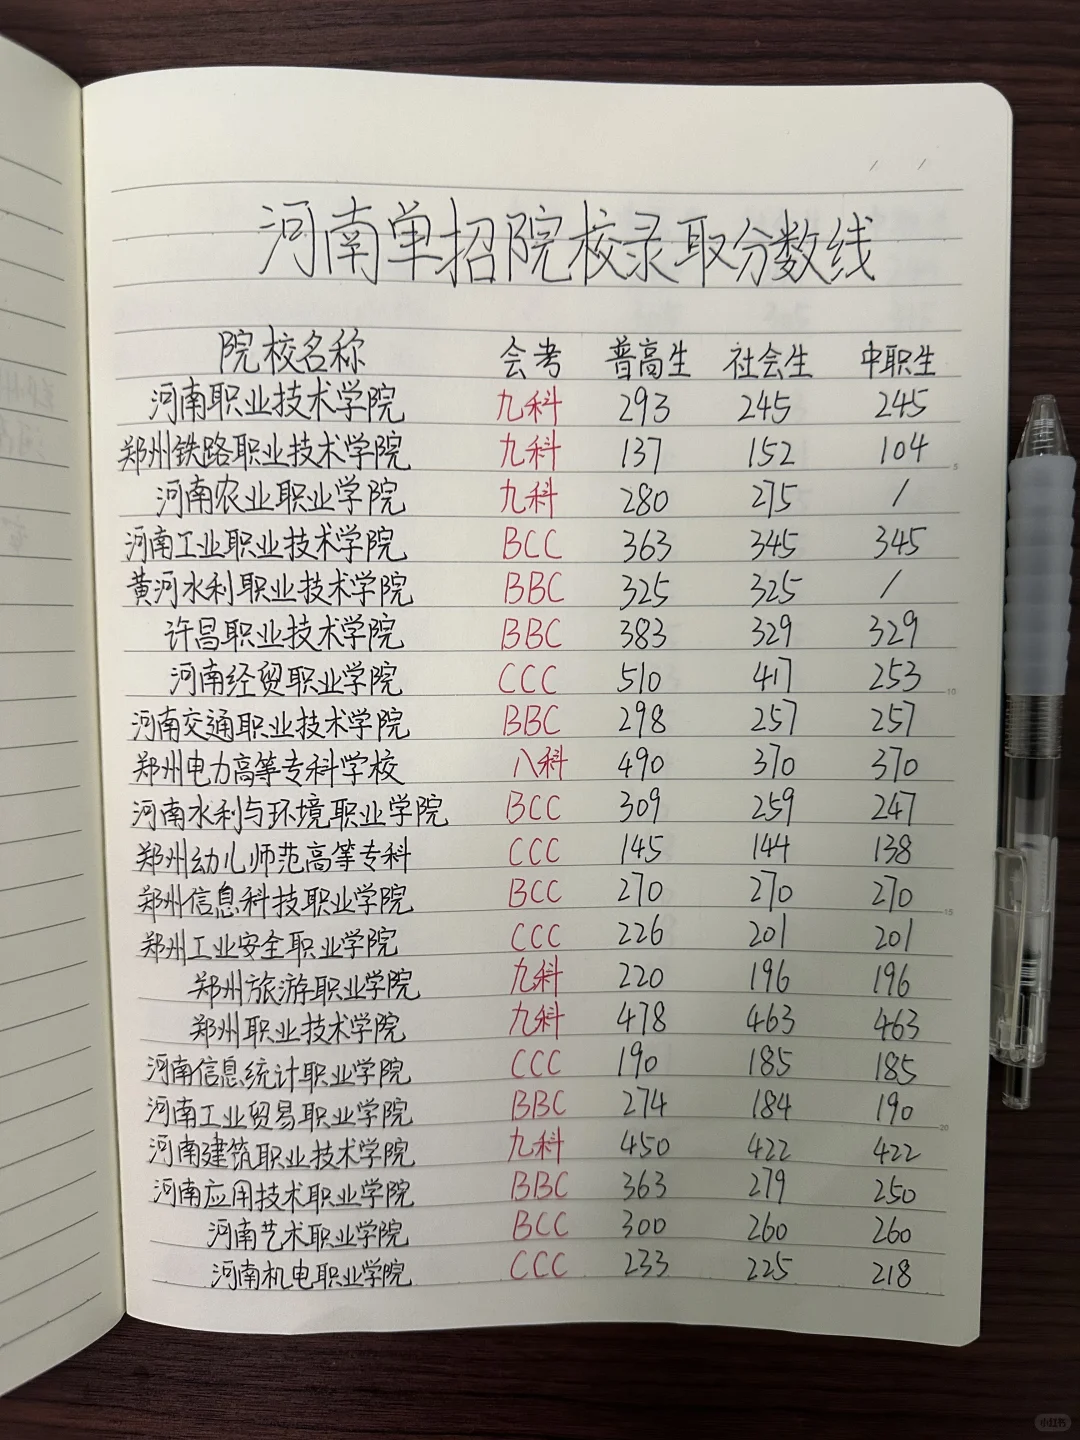 河南单招院校录取分数线
院校名称 会考 普高生 社会生 中职生
河南职业技术学院 九科 293 245 245
郑州铁路职业技术学院 九科 137 152 104
5
河南农业职业学院 九科 280 275 /
河南工业职业技术学院 BCC 363 345 345
黄河水利职业技术学院 BBC 325 325 /
许昌职业技术学院 BBC 383 329 329
河南经贸职业学院 CCC 510 417 253
10
河南交通职业技术学院 BBC 298 257 257
郑州电力高等专科学校 八科 490 370 370
河南水利与环境职业学院 BCC 309 259 247
郑州幼儿师范高等专科 CCC 145 144 138
郑州信息科技职业学院 BCC 270 270 270
15
郑州工业安全职业学院 CCC 226 201 201
郑州旅游职业学院 九科 220 196 196
郑州职业技术学院 九科 478 463 463
河南信息统计职业学院 CCC 190 185 185
河南工业贸易职业学院 BBC 274 184 190
20
河南建筑职业技术学院 九科 450 422 422
河南应用技术职业学院 BBC 363 279 250
河南艺术职业学院 BCC 300 260 260
河南机电职业学院 CCC 233 225 218
小红书